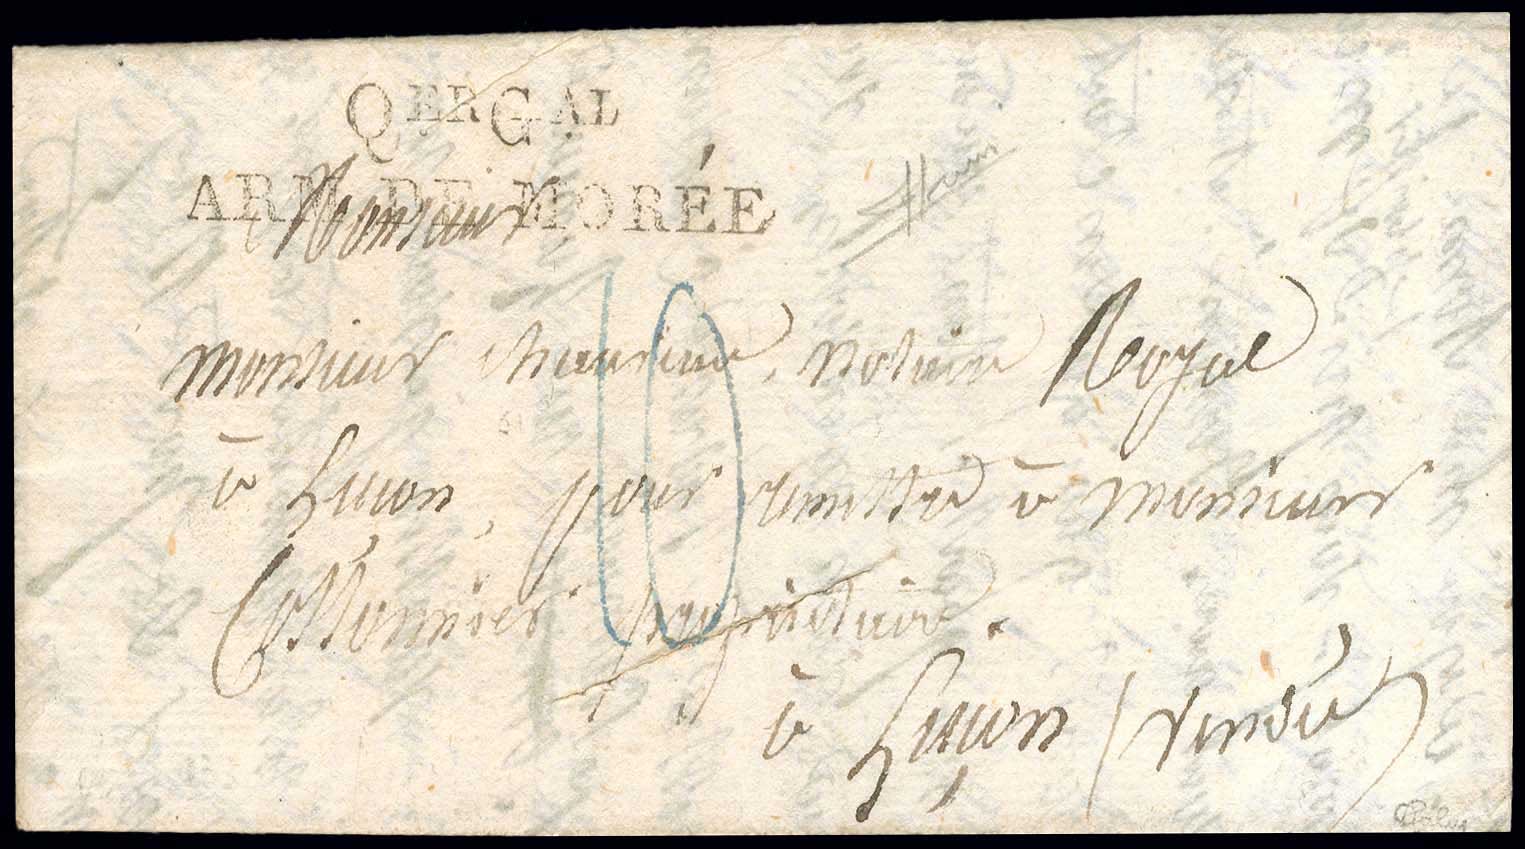 QER GAL
ARM. DE MORÉE
Monsieur
10
monsieur notaire Royal
à Luçon, pour remettre à monsieur
propriétaire.
à Luçon (vendée)